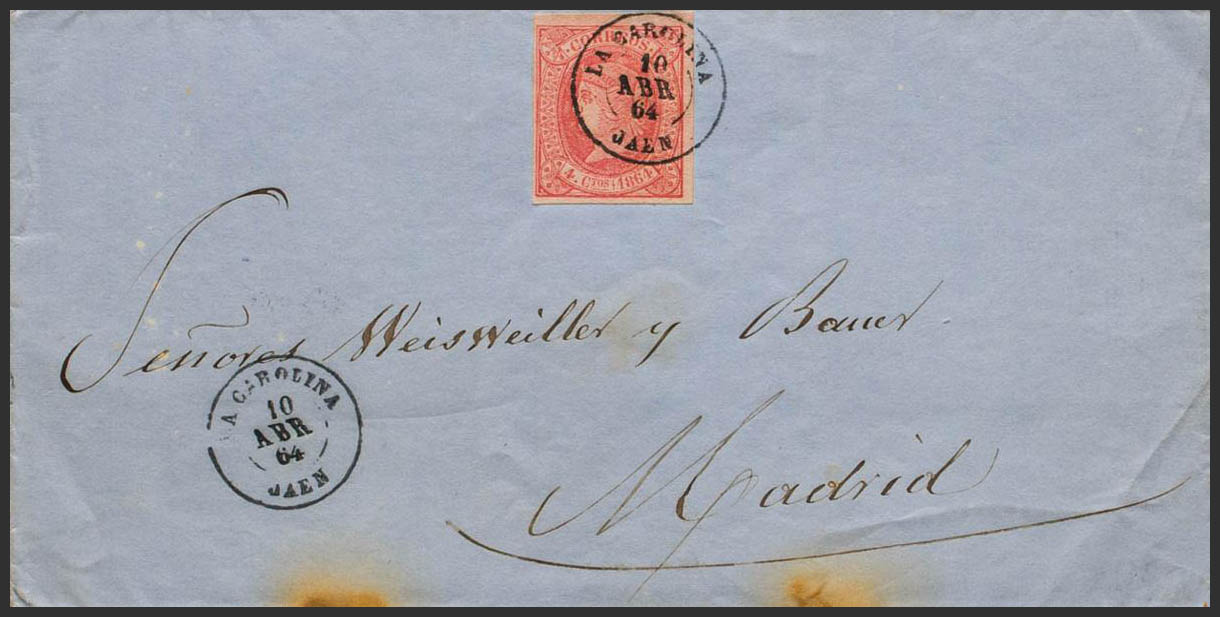 CORREOS
LA CAROLINA
10
ABR
64
JAEN
4 CTOS 1864
Señores Weisweiller y Bauer
LA CAROLINA
10
ABR
64
JAEN
Madrid